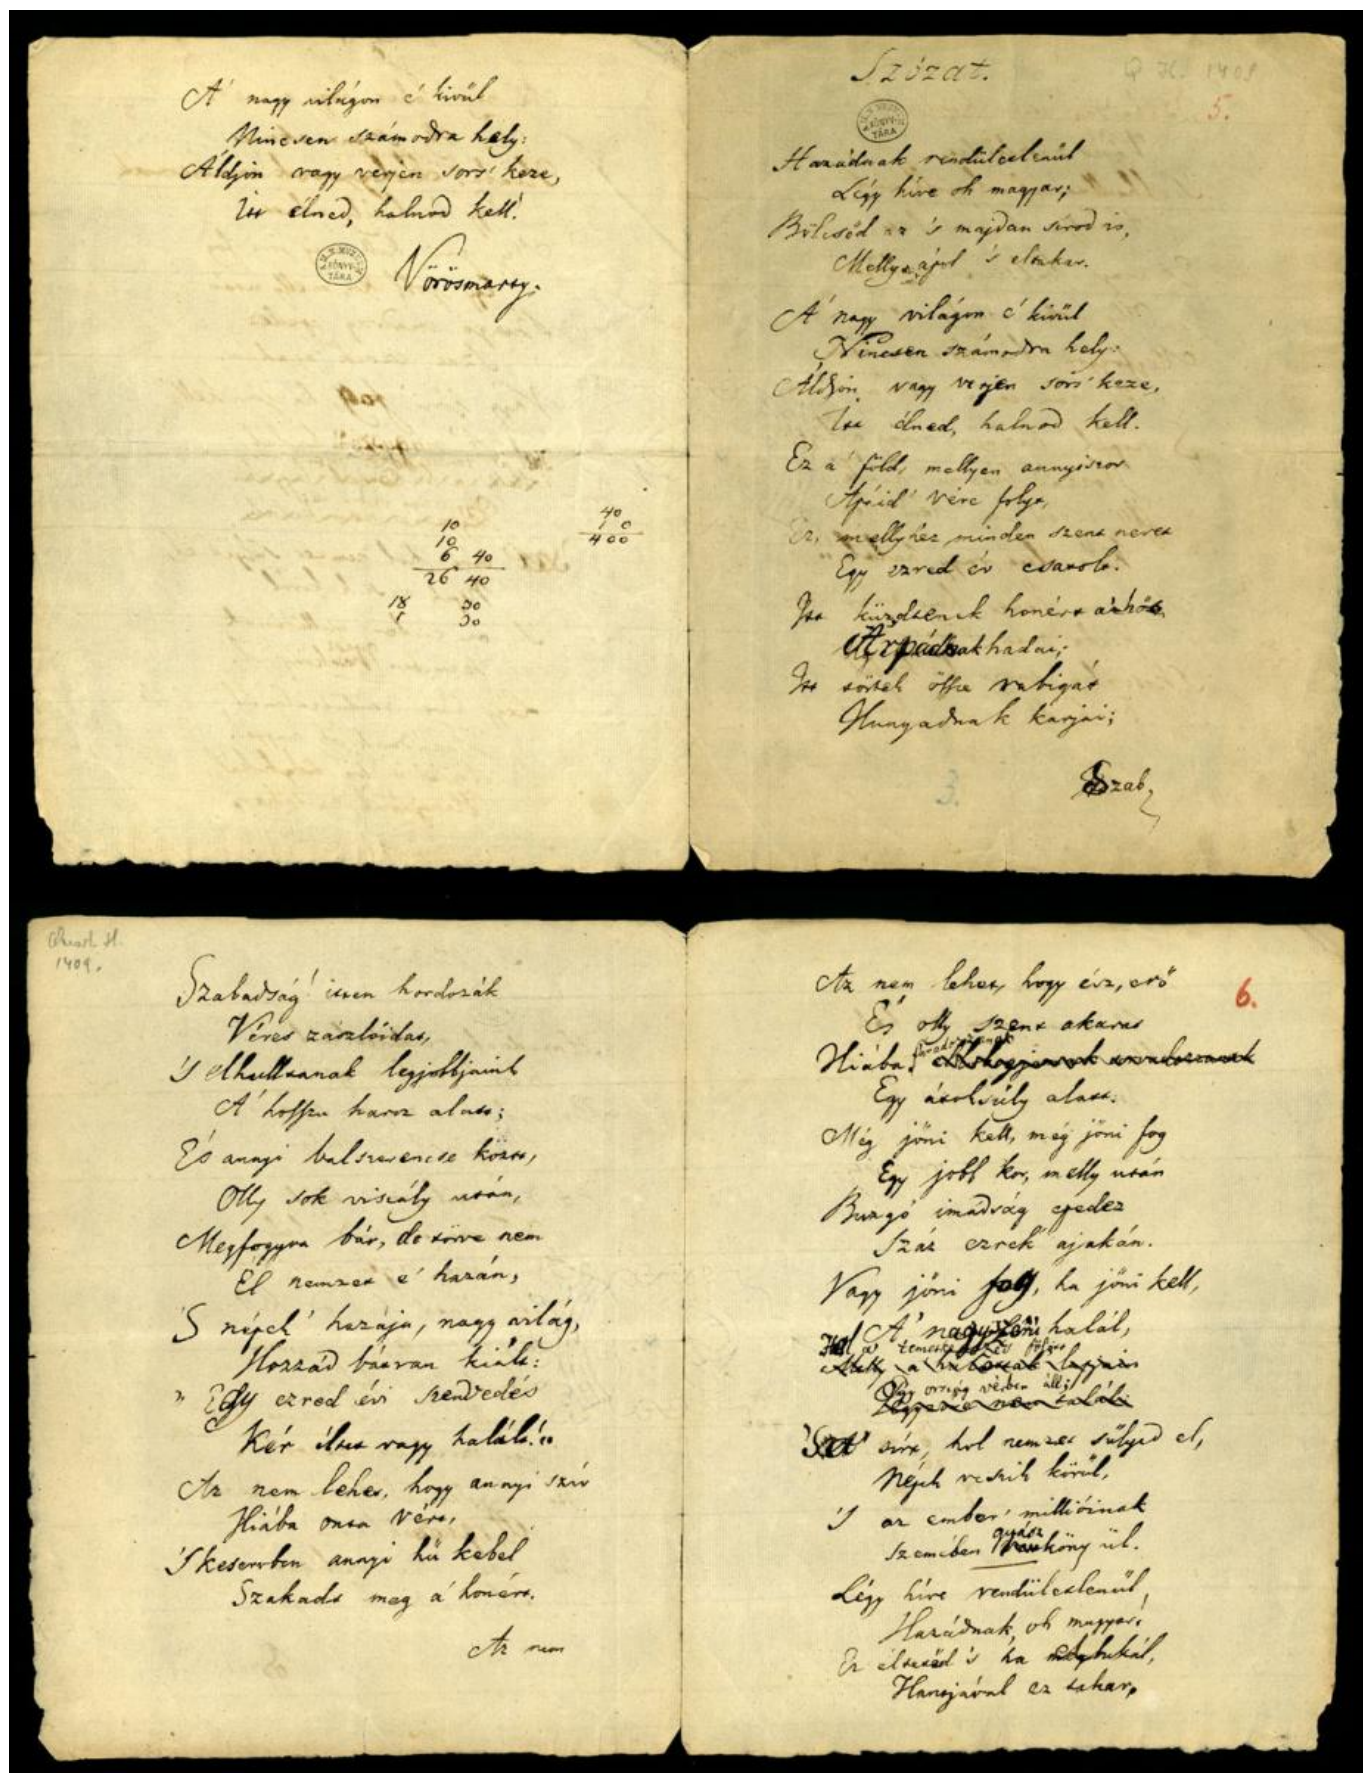 A' nagy világon é kivül
Nincsen számodra hely:
Áldjon vagy verjen sors' keze,
Itt élned, halnod kell!
Vörösmarty.
10
10
6 40
26 40
18 30
1 30
40
10
400
Szózat.
Q H. 1409
5.
Hazádnak rendületlenűl
Légy híve oh magyar;
Bölcsőd az 's majdan sírod is,
Melly ápol 's eltakar.
A' nagy világon é kivül
Nincsen számodra hely:
Áldjon vagy verjen sors' keze,
Itt élned, halnod kell.
Ez a' föld, mellyen annyiszor
Apáid' vére folyt,
Ez, mellyhez minden szent nevet
Egy ezred év csatolt.
Itt küzdtenek honért a' hős
Árpádnak hadai;
Itt törtek össze rabigát
Hunyadnak karjai;
Szab,
3.
Quart H.
1409.
Szabadság! itten hordozák
Véres zászlóidat,
'S elhulltanak legjobbjaink
A' hosszu harcz alatt;
És annyi balszerencse közt,
Olly sok viszály után,
Megfogyva bár, de törve nem
Él nemzet e' hazán,
'S népek' hazája, nagy világ,
Hozzád bátran kiált:
„ Egy ezred évi szenvedés
Kér éltet vagy halált!"
Az nem lehet, hogy annyi szív
Hiába onta vért,
'S keservben annyi hű kebel
Szakadt meg a' honért.
Az nem
Az nem lehet, hogy ész, erő
És olly szent akarat
Hiába sorvadozzanak
Egy átoksúly alatt.
Még jőni kell, még jőni fog
Egy jobb kor, melly után
Buzgó imadság epedez
Száz ezrek' ajakán.
Vagy jőni fog, ha jőni kell,
A' nagyszerű halál,
Hol a' temetkezés fölött
Egy ország vérben áll;
'S a' sírt, hol nemzet sűlyed el,
Népek veszik körűl,
'S az ember' millióinak
Szemében gyászköny űl.
Légy híve rendületlenűl,
Hazádnak, oh magyar:
Ez éltetőd 's ha elbukál,
Hantjával ez takar,
6.